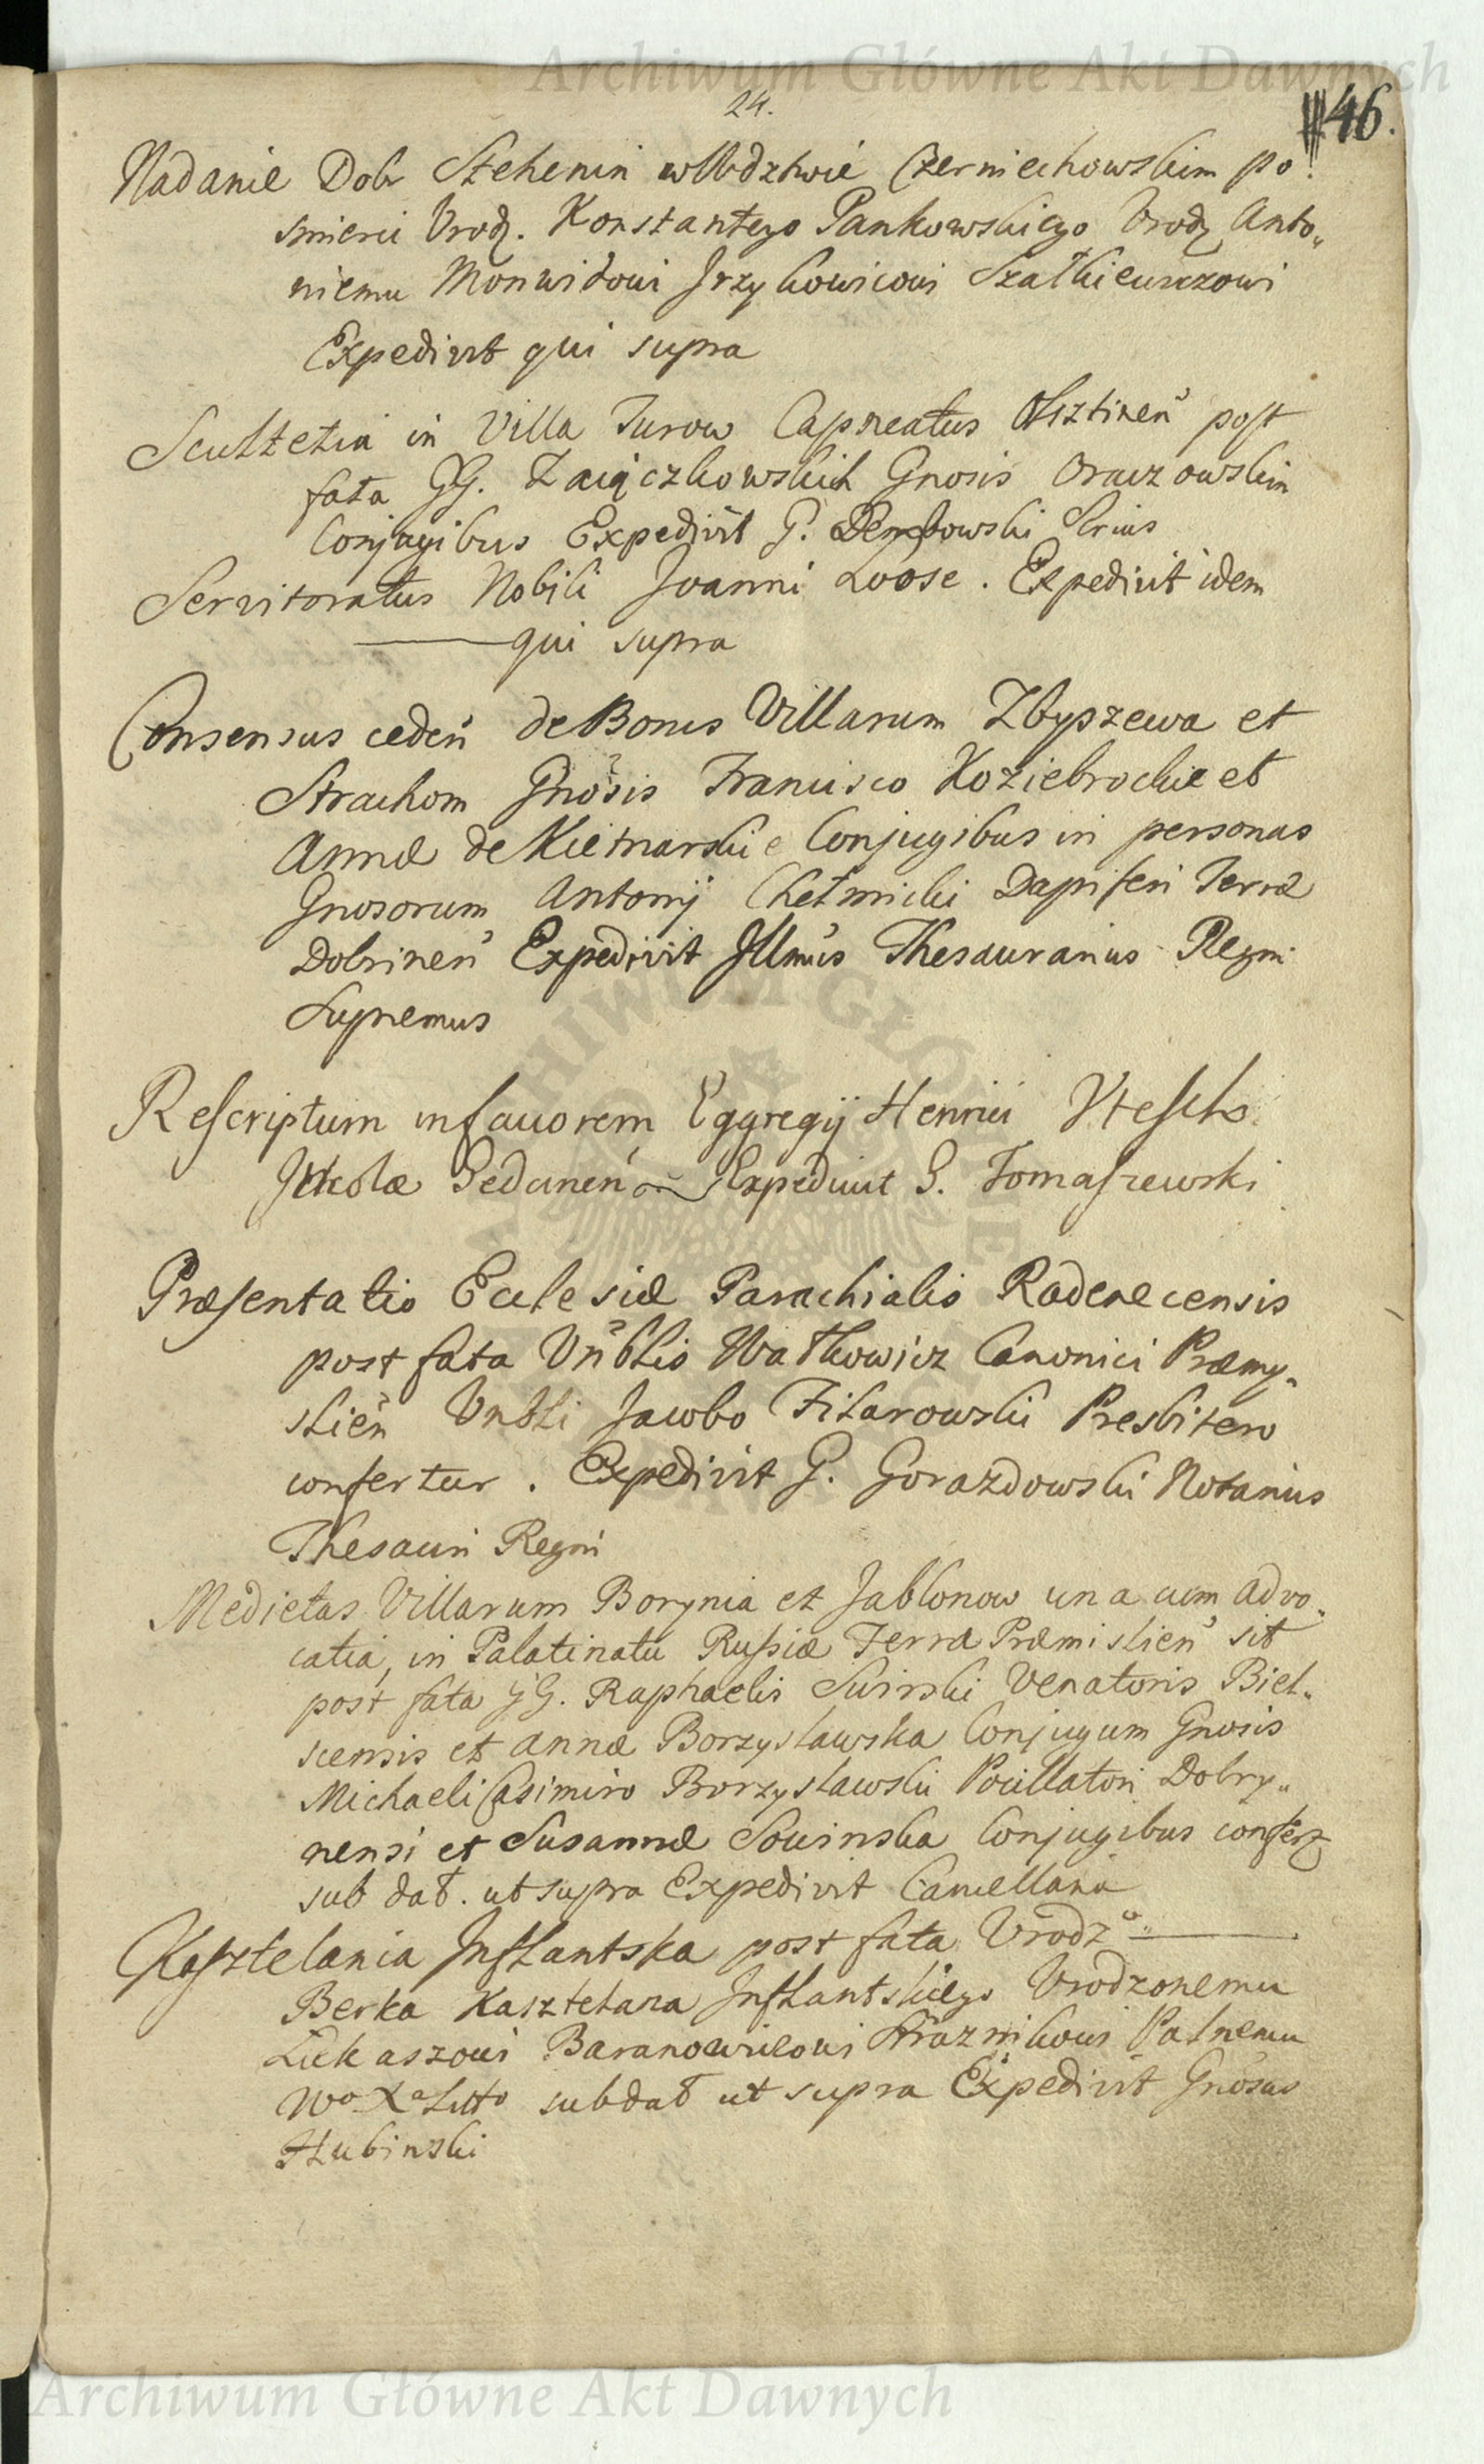 Archiwum Główne Akt Dawnych
24.
46.
Nadanie Dobr Stehenin wWdztwie Czerniechowskim po
smierci Urodz. Konstantego Pankowskiego Urodz Anto„
niemu Monwidowi Irzykowicowi Szatkiewiczowi
Expedivit qui supra
Scultetia in Villa Turow Capneatus Olsztinen post
fata GG. Zaiączkowskich Gnosis Oraczowskim
Conjugibus Expedivit G. Dembowski Srius
Servitoratus Nobili Joanni Loose. Expedivit idem
qui supra
Consensus ceden de Bonis Villarum Zbyszewa et
Strachom Gnosis Francisco Koziebrockie et
Annæ de Kietnarskie Conjugibus in personas
Gnosorum Antonij Chełmicki Dapiferi Terræ
Dobrinen Expedivit Illmus Thesaurarius Regni
Supremus
Rescriptum in favorem Eggregij Henrici
Incolæ Gedanen Expedivit G. Tomaszewski
Præsentatio Ecclesiæ Parochialis Radenecensis
post fata Vnblis Watkowicz Canonici Præmy„
slien Vnbli Jacobo Filarowski Presbitero
confertur. Expedivit G. Gorazdowski Notarius
Thesauri Regni
Medietas Villarum Borynia et Jablonow una cum advo„
catia, in Palatinatu Russiæ Terræ Præmislien sit
post fata GG. Raphaelis Suirski Venatoris Biel„
scensis et Annæ Borzysławska Conjugum Gnosis
Michaeli Casimiro Borzysławski Pocillatori Dobry„
nensi et Susannæ Souinska Conjugibus confert
sub dat. ut supra Expedivit Cancellaria
Kasztelania Inflantska post fata Urodzo
Berka Kasztelana Inflantskiego Urodzonemu
Łukaszowi Baranowiczowi Strażnikowi Polnemu
Wo Xa Litto sub dat ut supra Expedivit Gnosus
Hubinski
Archiwum Główne Akt Dawnych